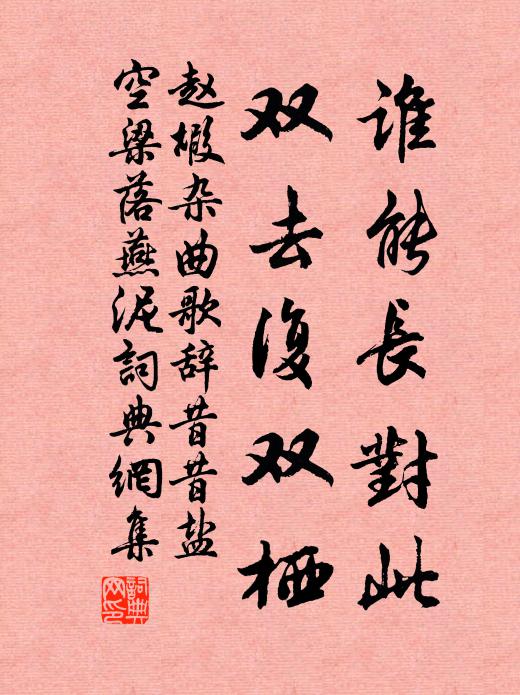 谁能長對此
双去復双栖
赵嘏杂曲歌辞昔昔盐
空梁落燕泥詞典網集
詞典網印